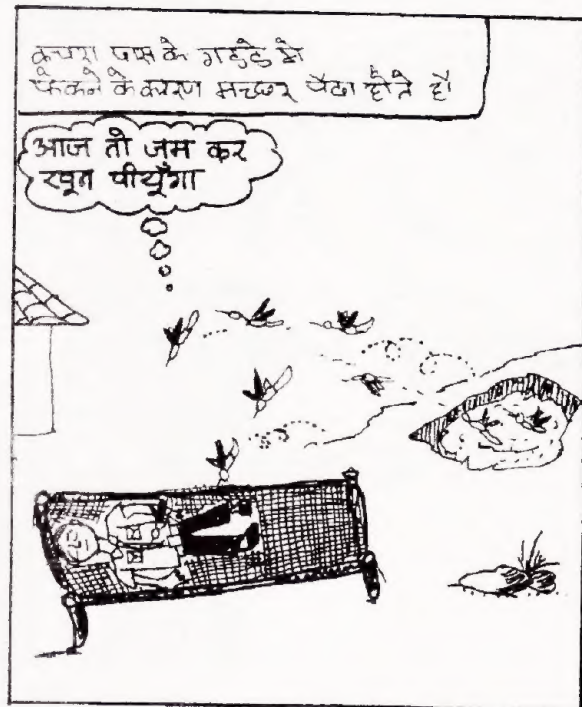 कचरा पास के गड्डे में
फेंकने के कारण मच्छर पैदा होते है
आज तो जम कर
खून पीयूँगा